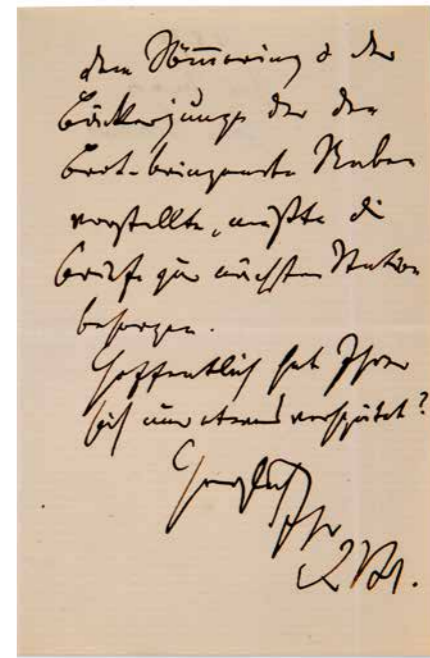 dem Sömmering & der
Bäckerjunge der den
Brot-bringende Raben
vorstellte, mußte die
Briefe zur nächsten Station
besorgen.
Hoffentlich hat Ihrer
sich nur etwas verspätet?
Herzlich
Ihr
J. Br.